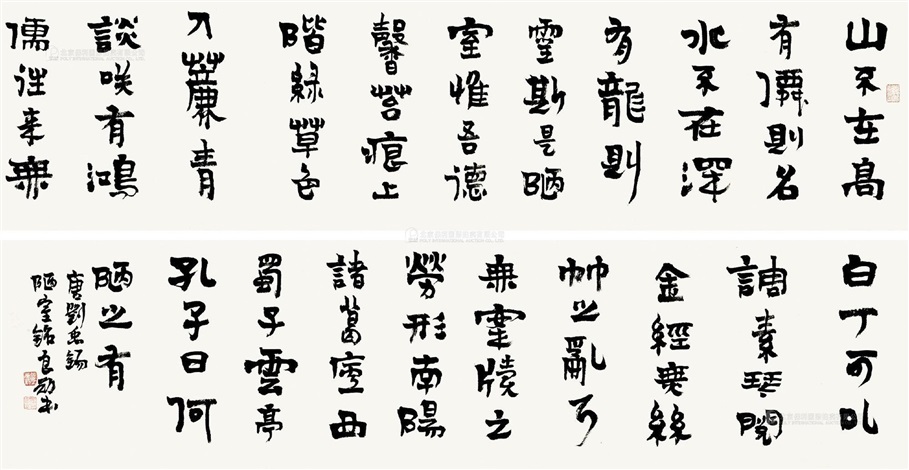 山不在高
有僊則名
水不在深
有龍則
靈斯是陋
室惟吾德
馨苔痕上
階綠草色
入簾青
談咲有鴻
儒往来無
白丁可以
調素琴閱
金經無絲
竹之亂耳
無案牘之
勞形南陽
諸葛廬西
蜀子雲亭
孔子曰何
陋之有
唐劉禹錫
陋室銘